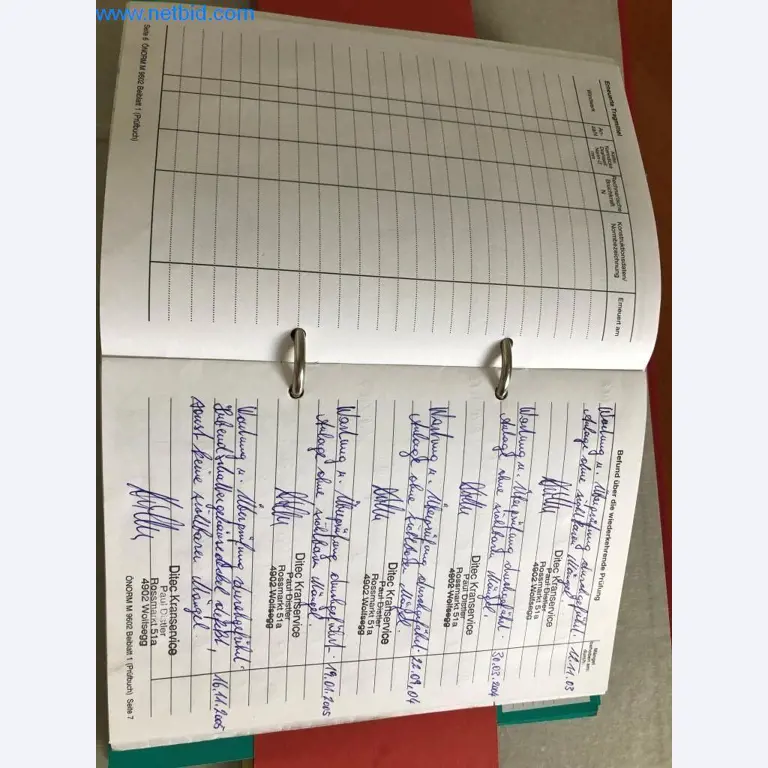 www.netbid.com
Erneuerte Tragmittel
Windwerk
An-
zahl
Konstruktionsdaten/
Normbezeichnung
Erneuert am
Seite 6 ÖNORM M 9602 Beiblatt 1 (Prüfbuch)
Befund über die wiederkehrende Prüfung
Mängel
behoben am:
durch
Wartung u. Überprüfung durchgeführt.
Anlage ohne sichtbaren Mängel! 12.11.03
Ditec Kranservice
Rossmarkt 51a
4902 Wolfsegg
Wartung u. Überprüfung durchgeführt.
Anlage ohne sichtbare Mängel!
Ditec Kranservice
Rossmarkt 51a
4902 Wolfsegg
Wartung u. Überprüfung durchgeführt. 22.09.04
Anlage ohne sichtbare Mängel!
Ditec Kranservice
Rossmarkt 51a
4902 Wolfsegg
Wartung u. Überprüfung durchgeführt. 19.01.2005
Anlage ohne sichtbare Mängel!
Ditec Kranservice
Rossmarkt 51a
4902 Wolfsegg
Wartung u. Überprüfung durchgeführt.
16.11.2005
sonst keine sichtbaren Mängel.
Ditec Kranservice
Rossmarkt 51a
4902 Wolfsegg
ÖNORM M 9602 Beiblatt 1 (Prüfbuch) Seite 7